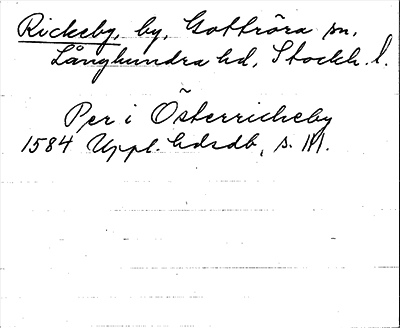 Rickeby, by, Gottröra sn,
Långhundra hd, Stockh. l.
Per i Österrickeby
1584 Uppl. hdsdb, s.